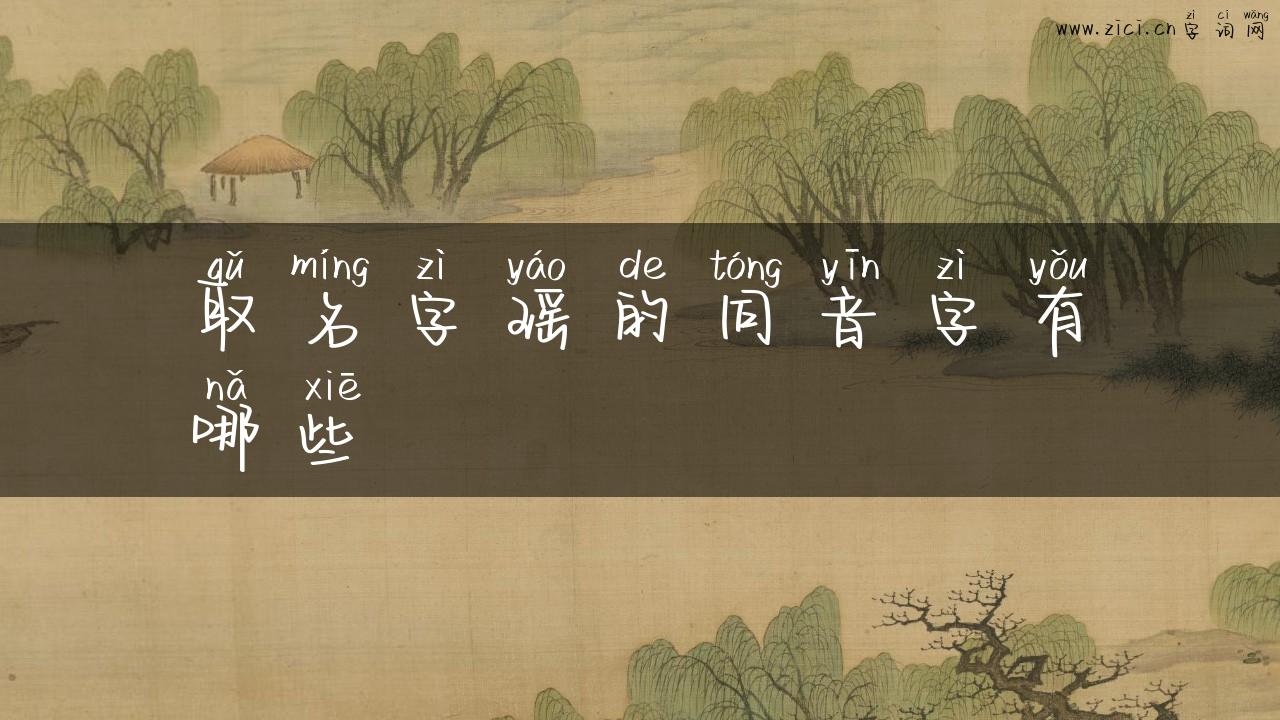 zì cí wǎng
www.zici.cn 字词网
qǔ míng zì yáo de tóng yīn zì yǒu
取名字瑶的同音字有
nǎ xiē
哪些